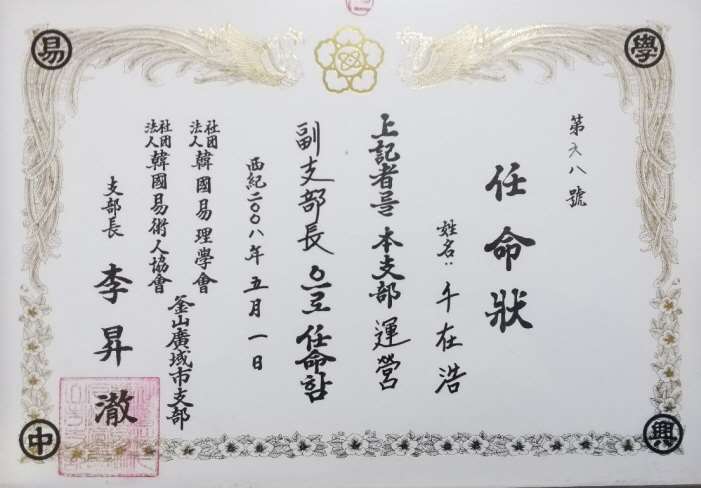 易 學
第六八號
任命狀
姓名: 千在浩
上記者를 本支部 運營
副支部長 으로 任命함
西紀二〇〇八年 五月 一日
社团法人 韓國易理學會
社团法人 韓國易術人協會
釜山廣域市支部
支部長 李昇澈
中 興